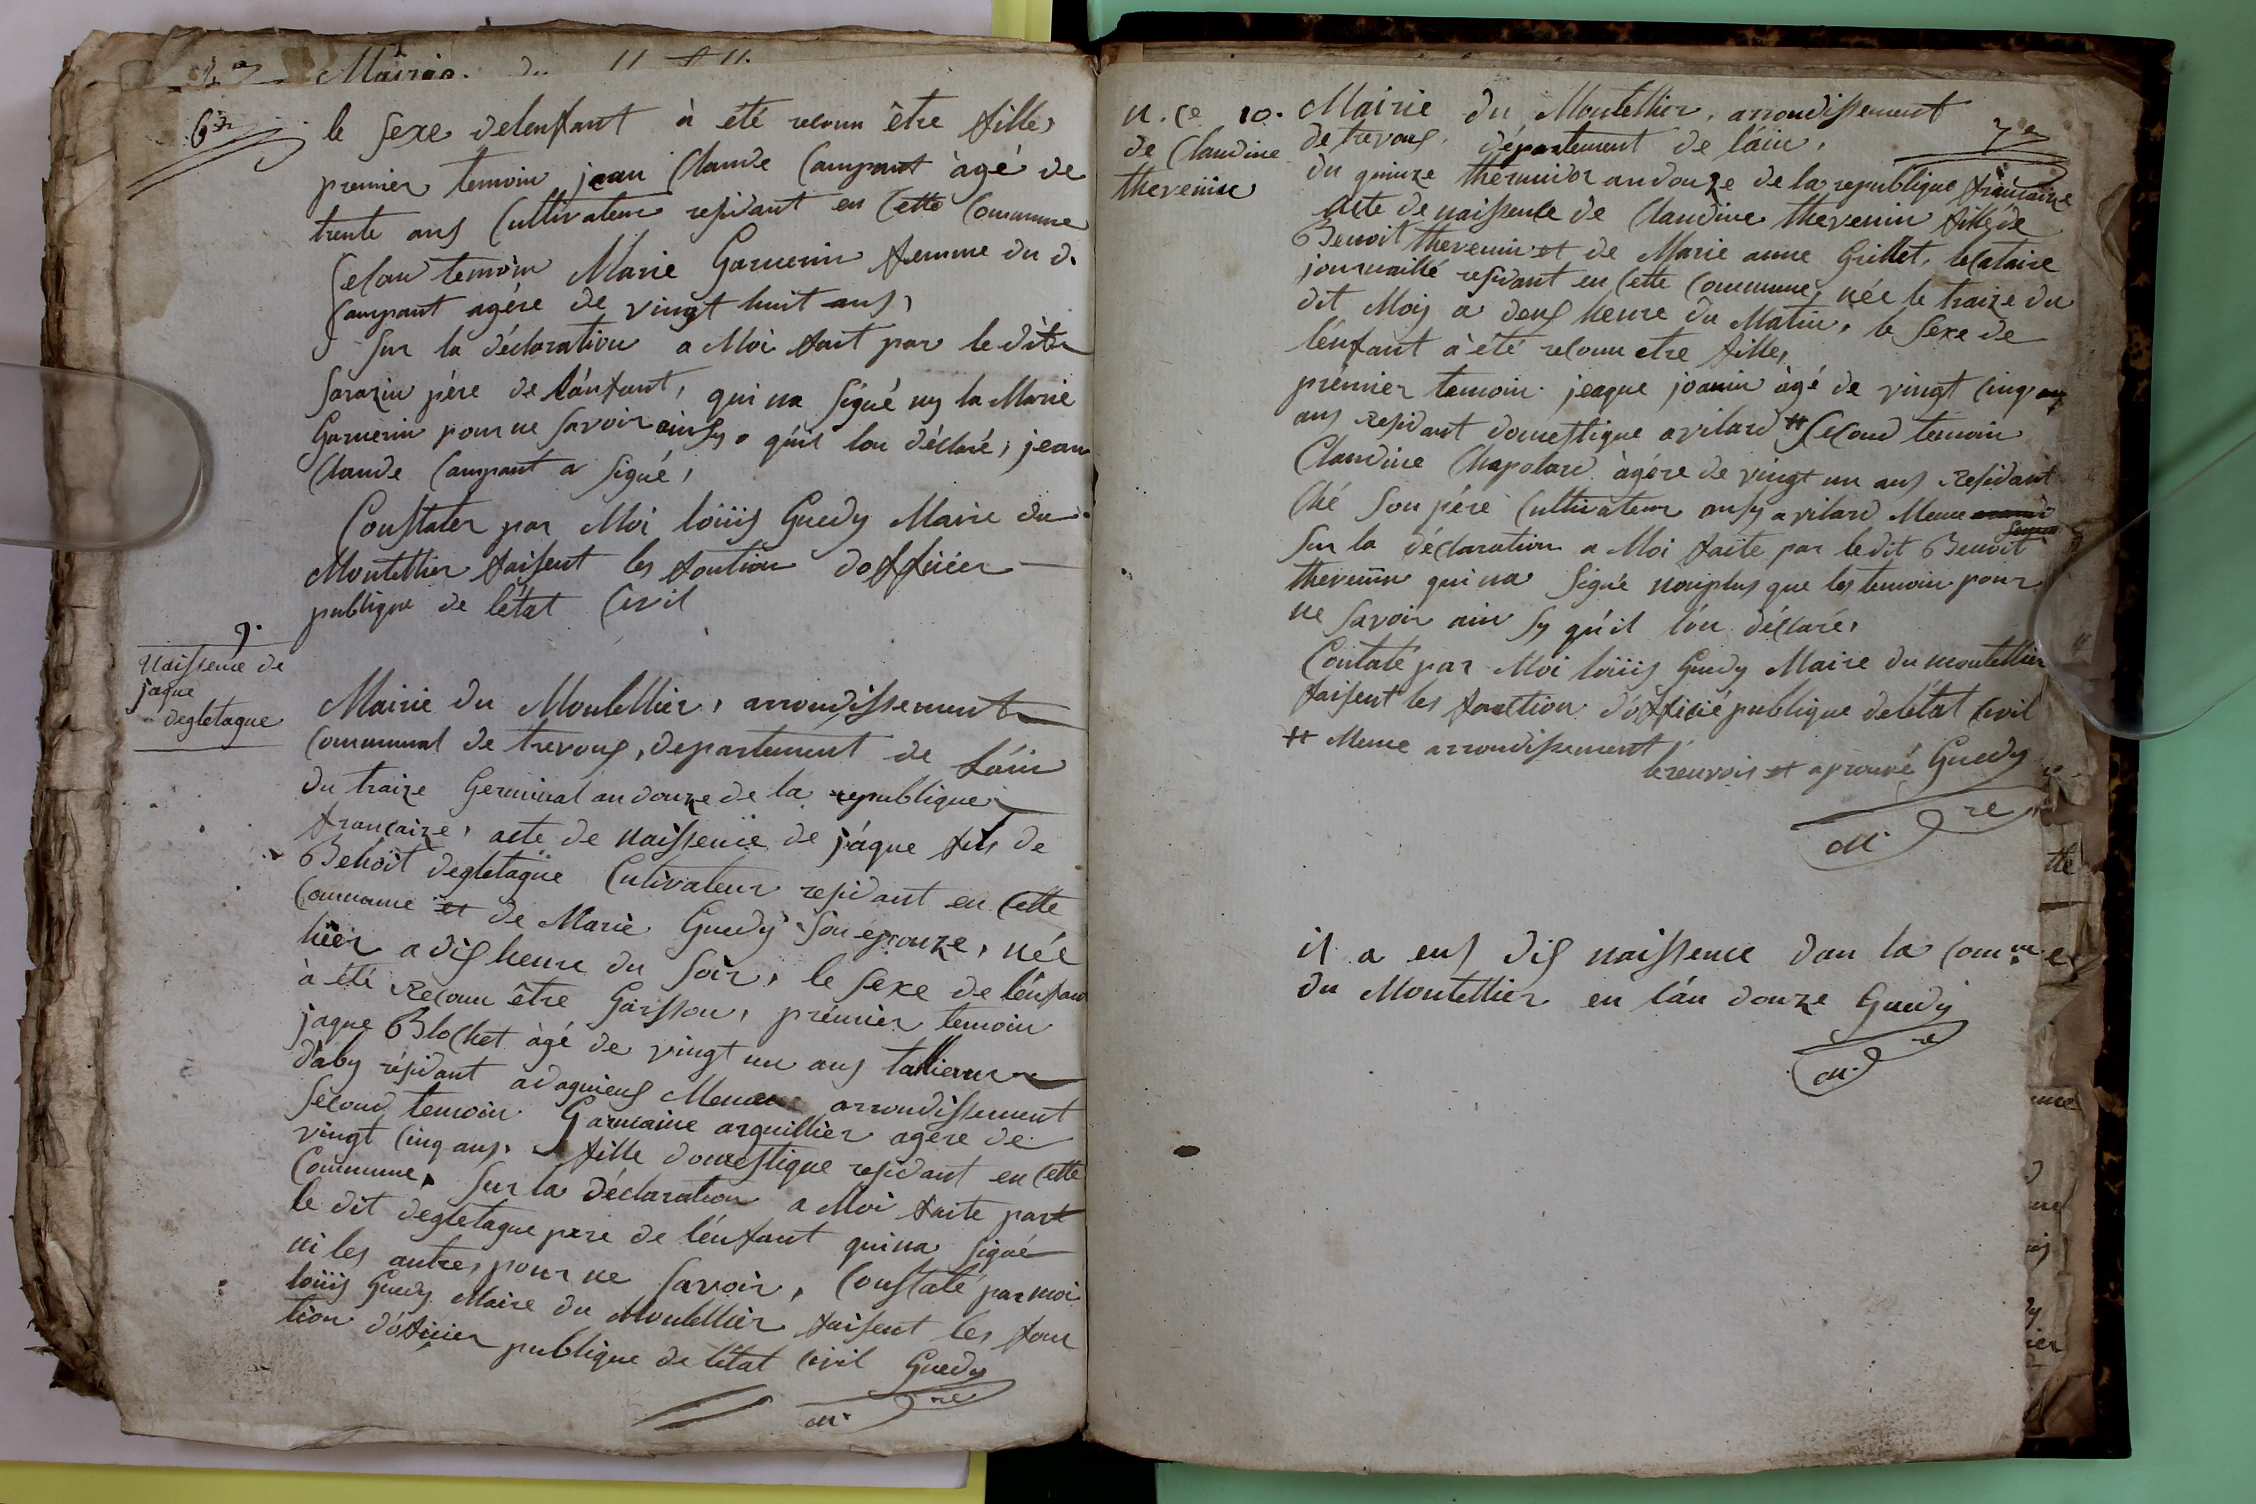 Mairie. du
6me
le sexe delenfant à été reconu être fille,
premier temoin jean Claude Campant àgé de
trente ans Cultivateur residant en Cette Commune
Secon temoin Marie Garnerin femme du d.
Campant agére de vingt huit ans,
Sur la déclaration a Moi fait par le dit
Sarazin pére de l'anfant, qui na signé ny la Marie
Garnerin pour ne savoir ainsy qu'il lon déclaré, jean
Claude Campant a signé,
Constater par Moi loüis Guedy Maire du
Montellier faisent les fontion dofficier
publique de létat Civil
9.
Naissence de
jaque
degletagne
Mairie du Montellier, arrondissement
Communal de trevous, departement de l'áin
du traize Germinal an douze de la republique
françaize, acte de naissence de jáque fils de
Benoit degletagne Cultivateur residant en Cette
Commune et de Marie Guedy son épouze, née
hier a dis heure du soir, le sexe de lénfant
à été reconu être Garsson, prémier temoin
jaque Blochet àgé de vingt un ans tallieur
d'aby résidant adagnieus Meme arrondissement
Second temoin Garmaine arguillier agére de
vingt cinq ans, fille domestique residant en Cette
Commune, Sur la déclaration a Moi faite part
le dit degletagne pere de lénfant qui na signé
ni les autre, pour ne savoir, Constaté par moi
loüis Guedy Maire du Montellier faisent les fon
tion dóficier publique de létat Civil Guedy
m. re
N. ce 10.
de Claudine
thevenin
7me
Mairie du Montellier, arrondissement
de trevous, département de láin,
du quinze thermidor an douze de la republique francaize
acte de naissence de Claudine thevenin fille de
Benoit thevenin et de Marie anne Grillet, locataire
journaillé residant en Cette Commune, née le traize du
dit Mois a deus heure du Matin, le sexe de
lénfant à été reconu etre fille,
prémier temoin jeaque joanin àgé de vingt cinq
ans residant domestique a vilard # Second temoin
Claudine Chapolard àgére de vingt un ans residant
Ché son pére Cultivateur ansy a vilard Meme
Sur la déclaration a Moi faite par le dit Benoit
thevenin qui na signé nonplus que les temoin pour
ne savoir ain sy qu'il lón déclaré,
Contaté par Moi loüis Guedy Maire du montellier
faisent les fonction dófficié publique de létat civil
# Meme arrondissement
le renvois et aprouvé Guedy
m. re
il a eus dis naissence dan la comme
du Montellier en lán douze Guedy
m. re